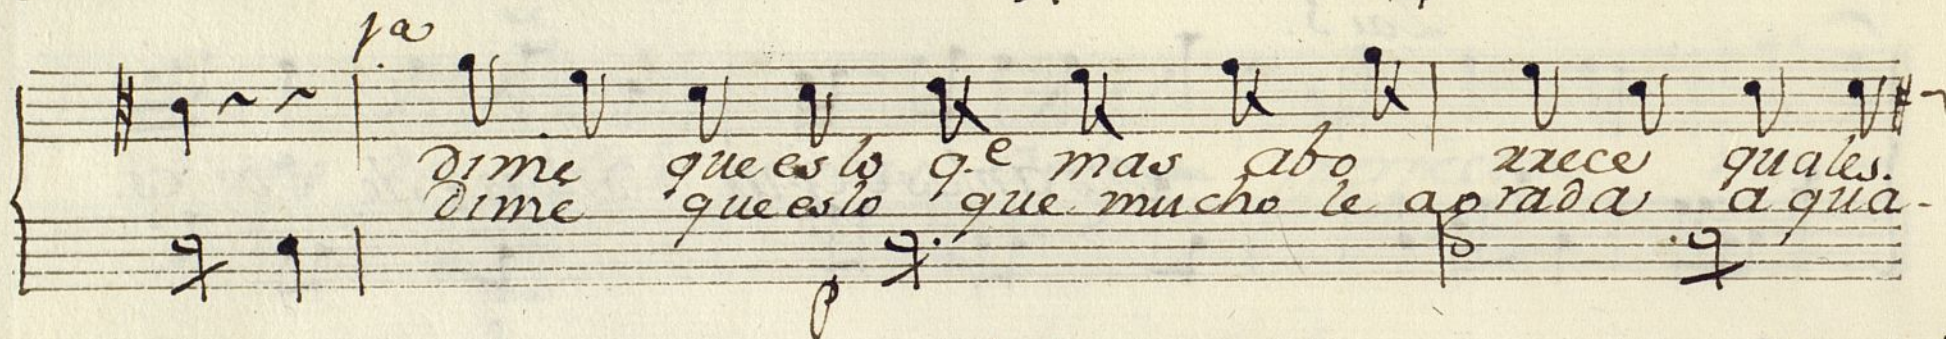 1a
dime que es lo q.e mas abo rrece quales.
dime que es lo que mucho le agrada a qua-
p